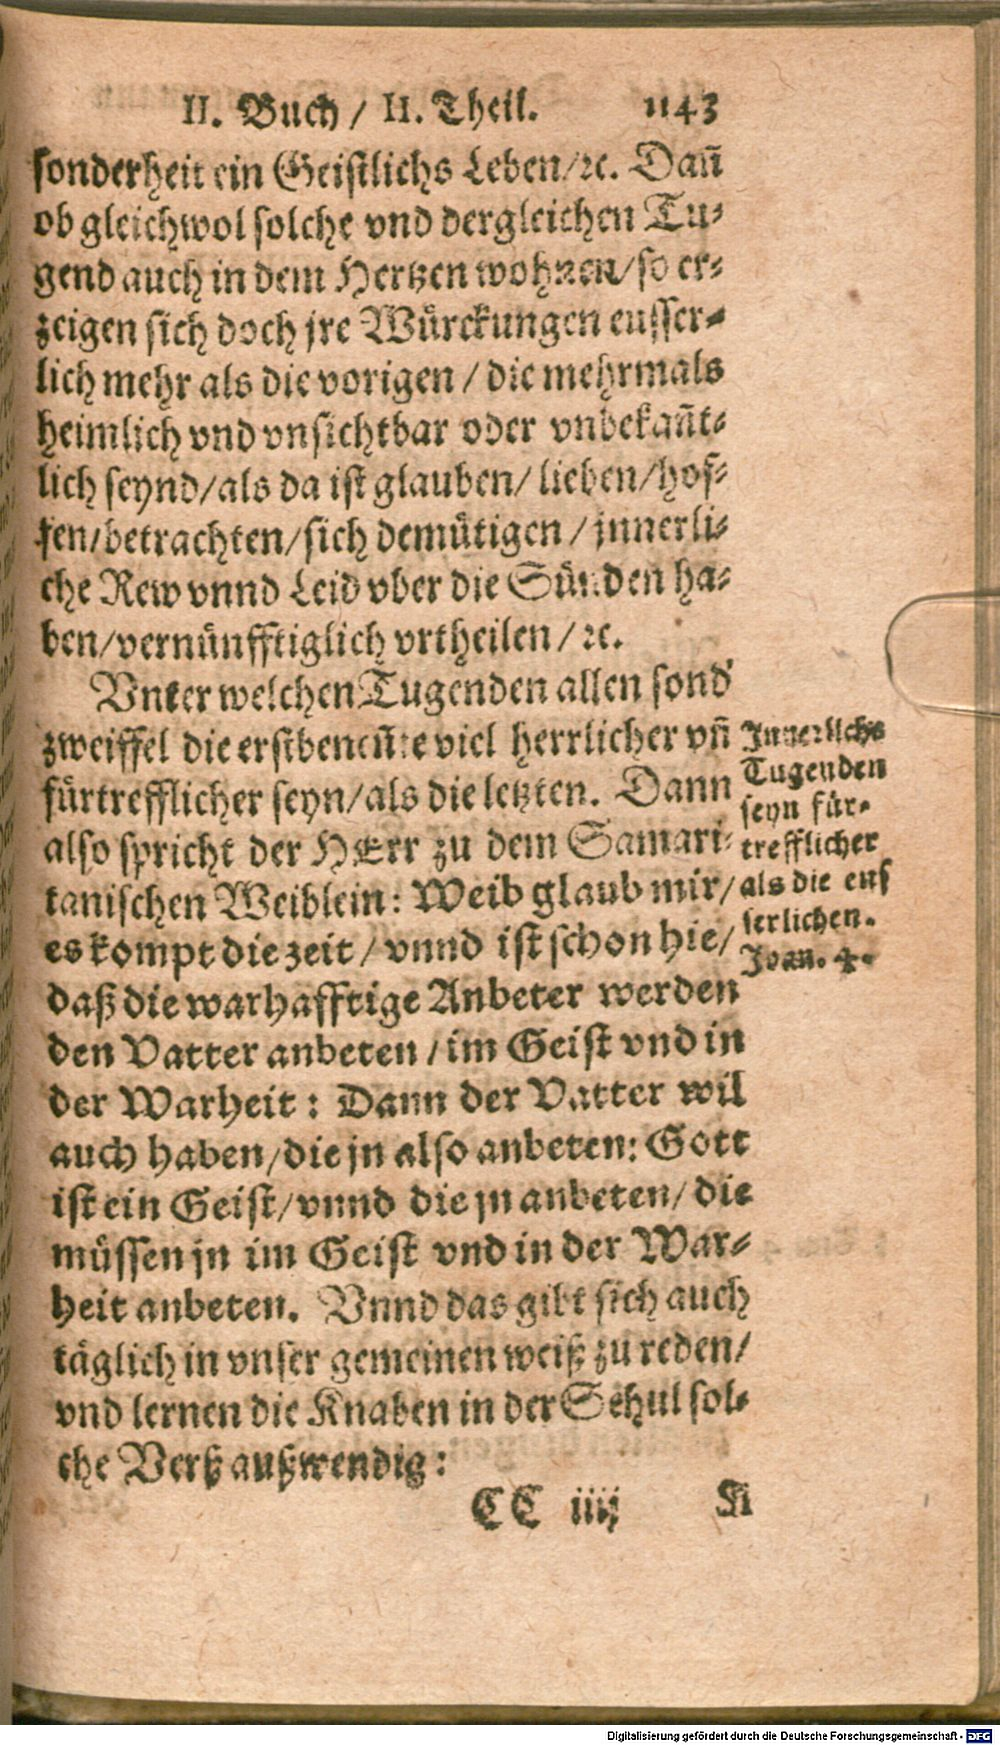 II. Buch / II. Theil. 1143
sonderheit ein Geistlichs Leben/ ꝛc. Dañ
ob gleichwol solche vnd dergleichen Tu-
gend auch in dem Hertzen wohnen/ so er-
zeigen sich doch jre Würckungen eusser-
lich mehr als die vorigen / die mehrmals
heimlich vnd vnsichtbar oder vnbekañt-
lich seynd/ als da ist glauben/ lieben/ hof-
fen/ betrachten/ sich demütigen / jnnerli-
che Rew vnnd Leid vber die Sünden ha-
ben/ vernünfftiglich vrtheilen / ꝛc.
Vnter welchen Tugenden allen sond'
zweiffel die erstbeneñte viel herrlicher vñ
fürtrefflicher seyn/ als die letzten. Dann
also spricht der HErr zu dem Samari-
tanischen Weiblein: Weib glaub mir/
es kompt die zeit / vnnd ist schon hie/
daß die warhafftige Anbeter werden
den Vatter anbeten / im Geist vnd in
der Warheit : Dann der Vatter wil
auch haben/ die jn also anbeten: Gott
ist ein Geist/ vnnd die jn anbeten/ die
müssen jn im Geist vnd in der War-
heit anbeten. Vnnd das gibt sich auch
täglich in vnser gemeinen weiß zu reden/
vnd lernen die Knaben in der Schul sol-
che Verß außwendig :
Innerliche
Tugenden
seyn für-
trefflicher
als die eus
serlichen.
Joan. 4.
CC iiij A
Digitalisierung gefördert durch die Deutsche Forschungsgemeinschaft - DFG